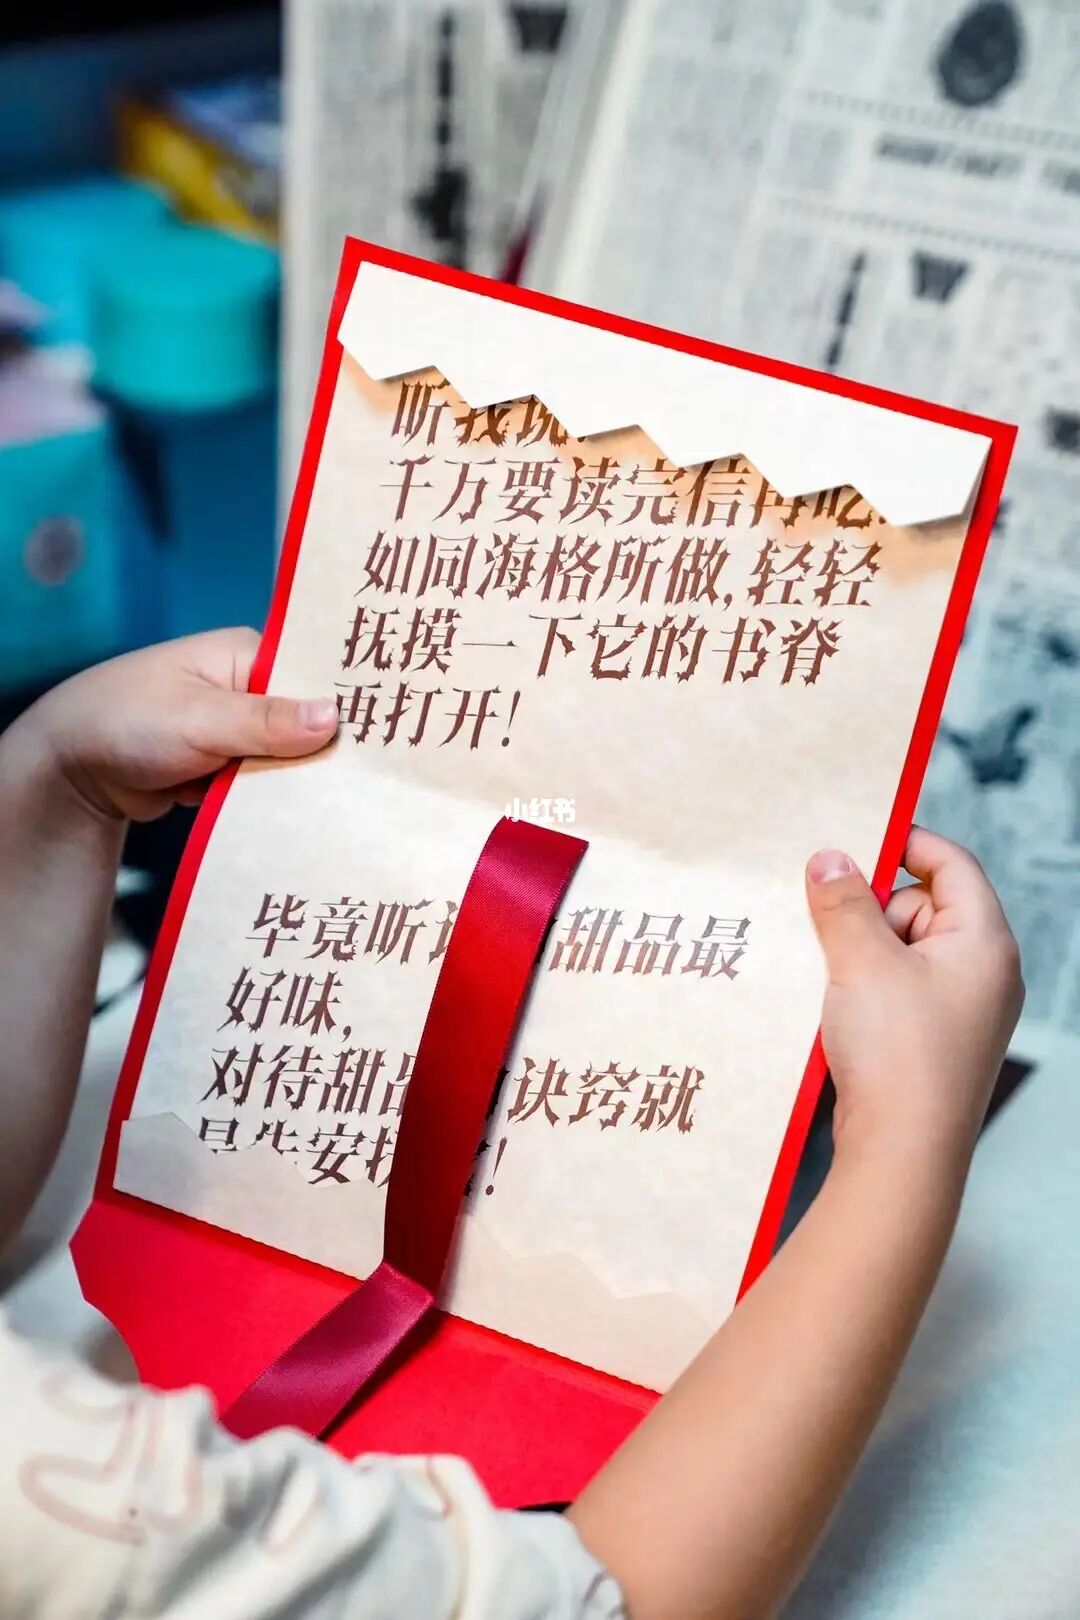 听我说!
千万要读完信再吃!
如同海格所做,轻轻
抚摸一下它的书脊
再打开!
小红书
毕竟听 甜品最
好味,
对待甜品 诀窍就
是先安抚 !